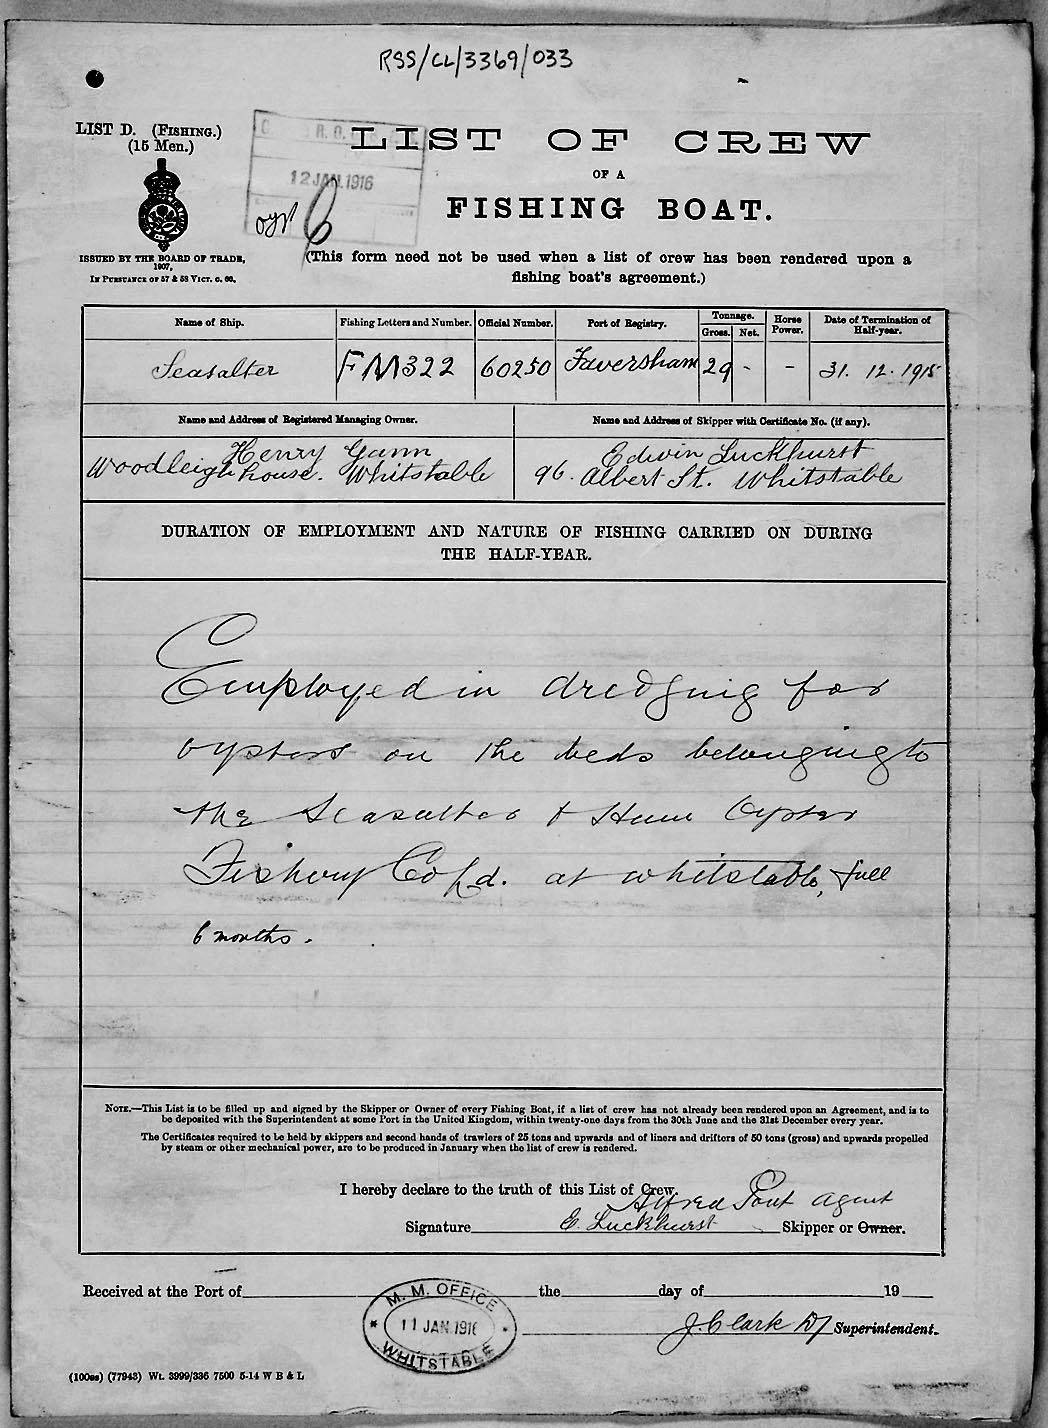 RSS/CL/3369/033
LIST D. (FISHING.)
(15 Men.)
LIST OF CREW
OF A
FISHING BOAT.
R. O.
12 JAN. 1916
ISSUED BY THE BOARD OF TRADE,
1907,
IN PURSUANCE OF 57 & 58 VICT. C. 60.
(This form need not be used when a list of crew has been rendered upon a
fishing boat's agreement.)
Name of Ship. Fishing Letters and Number. Official Number. Port of Registry. Tonnage. Gross. Net. Horse Power. Date of Termination of Half-year.
Seasalter FM322 60250 Faversham 29 - - 31. 12. 1915
Name and Address of Registered Managing Owner. Name and Address of Skipper with Certificate No. (if any).
Henry Gann Edwin Luckhurst
Woodleigh house. Whitstable 96. Albert St. Whitstable
DURATION OF EMPLOYMENT AND NATURE OF FISHING CARRIED ON DURING
THE HALF-YEAR.
Employed in dredging for
oysters on the beds belonging to
the Seasalter & Ham Oyster
Fishery Co Ld. at Whitstable, full
6 months.
NOTE.—This List is to be filled up and signed by the Skipper or Owner of every Fishing Boat, if a list of crew has not already been rendered upon an Agreement, and is to
be deposited with the Superintendent at some Port in the United Kingdom, within twenty-one days from the 30th June and the 31st December every year.
The Certificates required to be held by skippers and second hands of trawlers of 25 tons and upwards and of liners and drifters of 50 tons (gross) and upwards propelled
by steam or other mechanical power, are to be produced in January when the list of crew is rendered.
I hereby declare to the truth of this List of Crew.
Alfred Pout Agent
Signature E. Luckhurst Skipper or Owner.
Received at the Port of the day of 19
M. M. OFFICE
11 JAN 1916
WHITSTABLE
J. Clark Dy Superintendent.
(100es) (77943) Wt. 3999/336 7500 5-14 W B & L